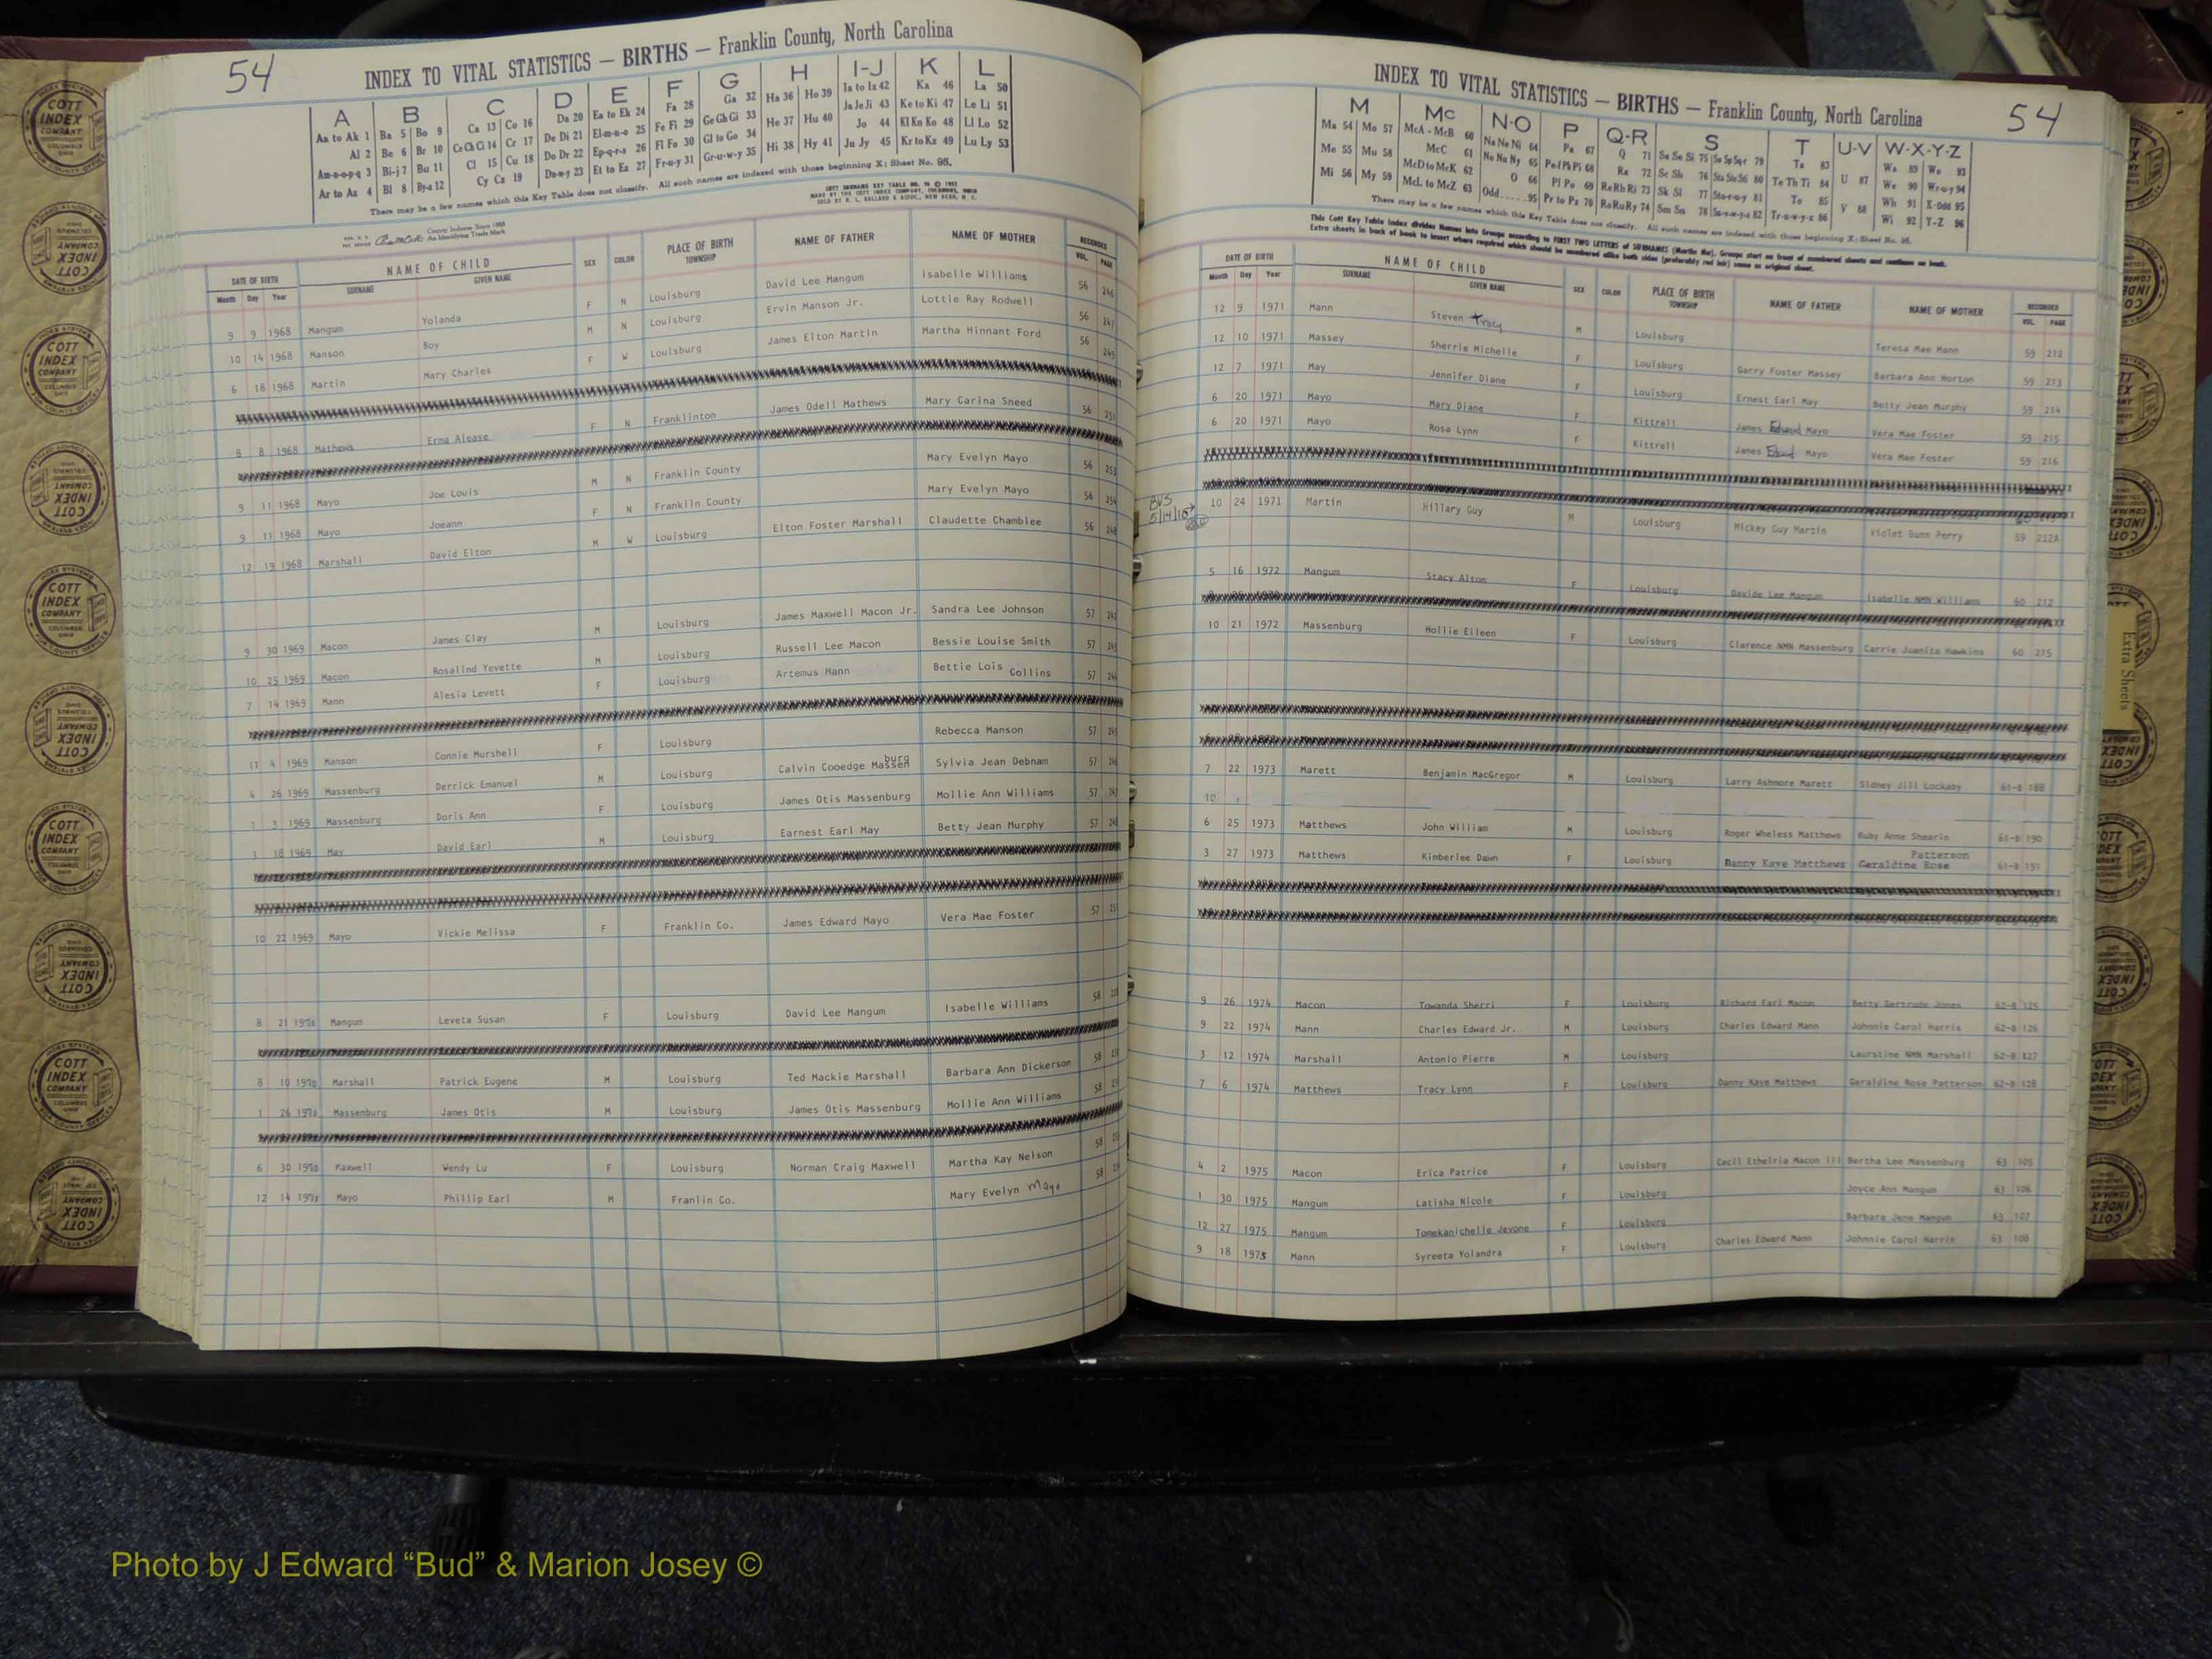 54
INDEX TO VITAL STATISTICS — BIRTHS — Franklin County, North Carolina
A B C D E F G H I-J K L
Aa to Ak 1 Ba 5 Bo 9 Ca 13 Co 16 Da 20 Ea to Ek 24 Fa 28 Ga 32 Ha 36 Ho 39 Ia to Iz 42 Ka 46 La 50
Al 2 Be 6 Br 10 Ce Ch Ci 14 Cr 17 De Di 21 El-m-n-o 25 Fe Fi 29 Ge Gh Gi 33 He 37 Hu 40 Ja Je Ji 43 Ke to Ki 47 Le Li 51
Am-n-o-p-q 3 Bi-j 7 Bu 11 Cl 15 Cu 18 Do Dr 22 Ep-q-r-s 26 Fl Fo 30 Gl to Go 34 Hi 38 Hy 41 Jo 44 Kl Kn Ko 48 Ll Lo 52
Ar to Az 4 Bl 8 By-z 12 Cy Cz 19 Du-w-y 23 Et to Ez 27 Fr-u-y 31 Gr-u-w-y 35 Ju Jy 45 Kr to Kz 49 Lu Ly 53
There may be a few names which this Key Table does not classify. All such names are indexed with those beginning X; Sheet No. 95.
DATE OF BIRTH NAME OF CHILD SEX COLOR PLACE OF BIRTH TOWNSHIP NAME OF FATHER NAME OF MOTHER RECORDED
Month Day Year SURNAME GIVEN NAME VOL. PAGE
9 9 1968 Mangum Yolanda F N Louisburg David Lee Mangum Isabelle Williams 56 246
10 14 1968 Manson Boy M N Louisburg Ervin Manson Jr. Lottie Ray Rodwell 56 247
6 18 1968 Martin Mary Charles F W Louisburg James Elton Martin Martha Hinnant Ford 56 249
8 8 1968 Mathews Erma Alease F N Franklinton James Odell Mathews Mary Carina Sneed 56 251
9 11 1968 Mayo Joe Louis M N Franklin County Mary Evelyn Mayo 56 253
9 11 1968 Mayo Joeann F N Franklin County Mary Evelyn Mayo 56 254
12 19 1968 Marshall David Elton M W Louisburg Elton Foster Marshall Claudette Chamblee 56 248
9 30 1969 Macon James Clay M Louisburg James Maxwell Macon Jr. Sandra Lee Johnson 57
10 25 1969 Macon Rosalind Yevette M Louisburg Russell Lee Macon Bessie Louise Smith 57
7 14 1969 Mann Alesia Levett F Louisburg Artemus Mann Bettie Lois Collins 57
11 4 1969 Manson Connie Murshell F Louisburg Rebecca Manson 57
4 26 1969 Massenburg Derrick Emanuel M Louisburg Calvin Cooedge Massenburg Sylvia Jean Debnam 57
3 1969 Massenburg Doris Ann F Louisburg James Otis Massenburg Mollie Ann Williams 57
3 18 1969 May David Earl M Louisburg Earnest Earl May Betty Jean Murphy 57
10 22 1969 Mayo Vickie Melissa F Franklin Co. James Edward Mayo Vera Mae Foster 57
8 21 1970 Mangum Leveta Susan F Louisburg David Lee Mangum Isabelle Williams 58
8 10 1970 Marshall Patrick Eugene M Louisburg Ted Mackie Marshall Barbara Ann Dickerson 58
1 26 1970 Massenburg James Otis M Louisburg James Otis Massenburg Mollie Ann Williams 58
6 30 1970 Maxwell Wendy Lu F Louisburg Norman Craig Maxwell Martha Kay Nelson 58
12 14 1970 Mayo Phillip Earl M Franlin Co. Mary Evelyn Mayo 58
INDEX TO VITAL STATISTICS — BIRTHS — Franklin County, North Carolina
54
M Mc N-O P Q-R S T U-V W-X-Y-Z
Ma 54 Mo 57 McA - McB 60 Na Ne Ni 64 Pa 67 Q 71 Sa Se Si 75 So Sp Sq-r 79 Ta 83 Wa 89 Wo 93
Me 55 Mu 58 McC 61 No Nu Ny 65 Pe Pf Ph Pi 68 Ra 72 Sc Sh 76 Sta Ste Sti 80 Te Th Ti 84 U 87 We 90 Wr-u-y 94
Mi 56 My 59 McD to McK 62 O 66 Pl Po 69 Re Rh Ri 73 Sk Sl 77 Sto-r-u-y 81 To 85 V 88 Wh 91 X-Odd 95
McL to McZ 63 Odd 95 Pr to Pz 70 Ro Ru Ry 74 Sm Sn 78 Su-v-w-y-z 82 Tr-u-w-y-z 86 Wi 92 Y-Z 96
There may be a few names which this Key Table does not classify. All such names are indexed with those beginning X; Sheet No. 95.
This Cott Key Table Index divides Names into Groups according to FIRST TWO LETTERS of SURNAMES (Martin: Ma). Groups start on front of numbered sheets and continue on back.
Extra sheets in back of book to insert where required which should be numbered alike both sides (preferably red ink) same as original sheet.
DATE OF BIRTH NAME OF CHILD SEX COLOR PLACE OF BIRTH TOWNSHIP NAME OF FATHER NAME OF MOTHER RECORDED
Month Day Year SURNAME GIVEN NAME VOL. PAGE
12 9 1971 Mann Steven Tracy M Louisburg Teresa Mae Mann 59 212
12 10 1971 Massey Sherrie Michelle F Louisburg Garry Foster Massey Barbara Ann Horton 59 213
12 7 1971 May Jennifer Diane F Louisburg Ernest Earl May Betty Jean Murphy 59 214
6 20 1971 Mayo Mary Diane F Kittrell James Edward Mayo Vera Mae Foster 59 215
6 20 1971 Mayo Rosa Lynn F Kittrell James Edward Mayo Vera Mae Foster 59 216
BVS 5/14/10
10 24 1971 Martin Hillary Guy M Louisburg Mickey Guy Martin Violet Dunn Perry 59 212A
5 16 1972 Mangum Stacy Alton F Louisburg Davide Lee Mangum Isabelle NMN Williams 60 212
10 21 1972 Massenburg Hollie Eileen F Louisburg Clarence NMN Massenburg Carrie Juanita Hawkins 60 215
7 22 1973 Marett Benjamin MacGregor M Louisburg Larry Ashmore Marett Sidney Jill Lockaby 61-B 188
10
6 25 1973 Matthews John William M Louisburg Roger Wheless Matthews Ruby Anne Shearin 61-B 190
3 27 1973 Matthews Kimberlee Dawn F Louisburg Danny Kaye Matthews Geraldine Rose Patterson 61-B 191
9 26 1974 Macon Towanda Sherri F Louisburg Richard Earl Macon Betty Gertrude Jones 62-B 125
9 22 1974 Mann Charles Edward Jr. M Louisburg Charles Edward Mann Johnnie Carol Harris 62-B 126
3 12 1974 Marshall Antonio Pierre M Louisburg Laurstine NMN Marshall 62-B 127
7 6 1974 Matthews Tracy Lynn F Louisburg Danny Kaye Matthews Geraldine Rose Patterson 62-B 128
4 2 1975 Macon Erica Patrice F Louisburg Cecil Ethelria Macon III Bertha Lee Massenburg 63 105
1 30 1975 Mangum Latisha Nicole F Louisburg Joyce Ann Mangum 63 106
12 27 1975 Mangum Tomekanichelle Jevone F Louisburg Barbara Jene Mangum 63 107
9 18 1975 Mann Syreeta Yolandra F Louisburg Charles Edward Mann Johnnie Carol Harris 63 108
Extra Sheets
COTT INDEX COMPANY
Photo by J Edward “Bud” & Marion Josey ©